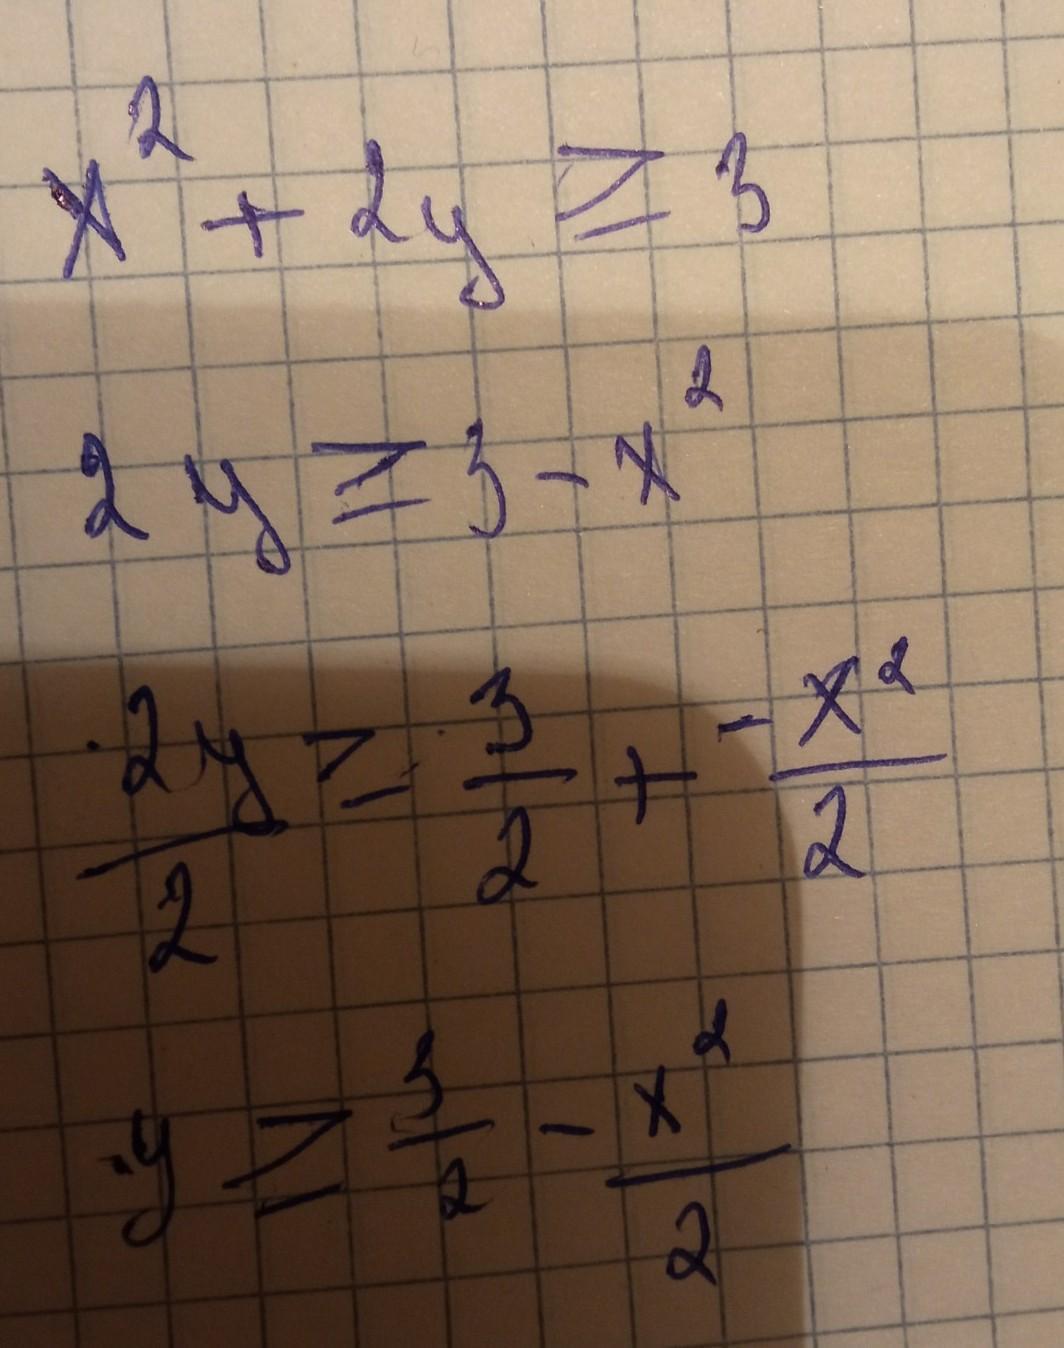 x² + 2y ≥ 3
2y ≥ 3 - x²
2y/2 ≥ 3/2 + -x²/2
y ≥ 3/2 - x²/2